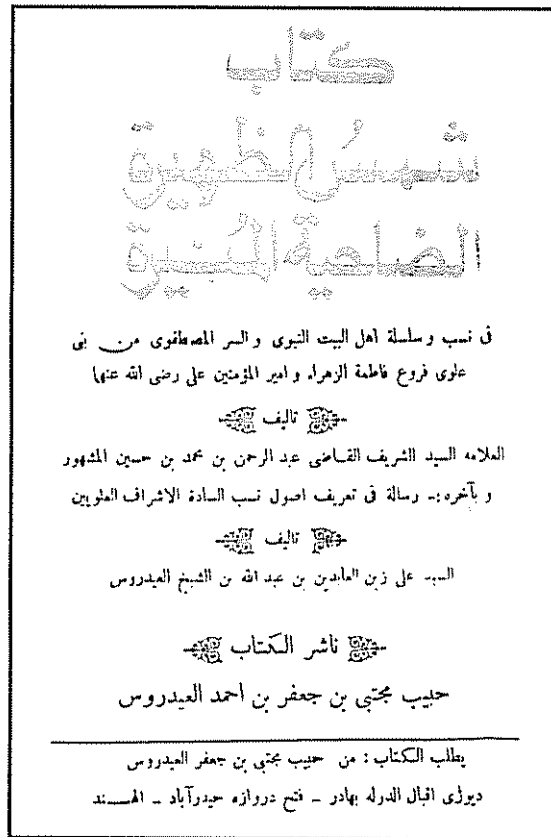 كتاب
شمسُ الظهيرة
الضاحية المُنيرة
فى نسب و سلسلة اهل البيت النبوى و السر المصطفوى من بنى
علوى فروع فاطمة الزهراء و امير المؤمنين على رضى الله عنهما
تاليف
العلامه السيد الشريف القاضى عبد الرحمن بن محمد بن حسين المشهور
و بآخره :ـ رسالة فى تعريف اصول نسب السادة الاشراف العلويين
تاليف
السيد على زين العابدين بن عبد الله بن الشيخ العيدروس
ناشر الكتاب
حبيب مجتبى بن جعفر بن احمد العيدروس
يطلب الكتاب : من حبيب مجتبى بن جعفر العيدروس
ديوڑى اقبال الدوله بهادر – فتح دروازه حيدرآباد – الهند